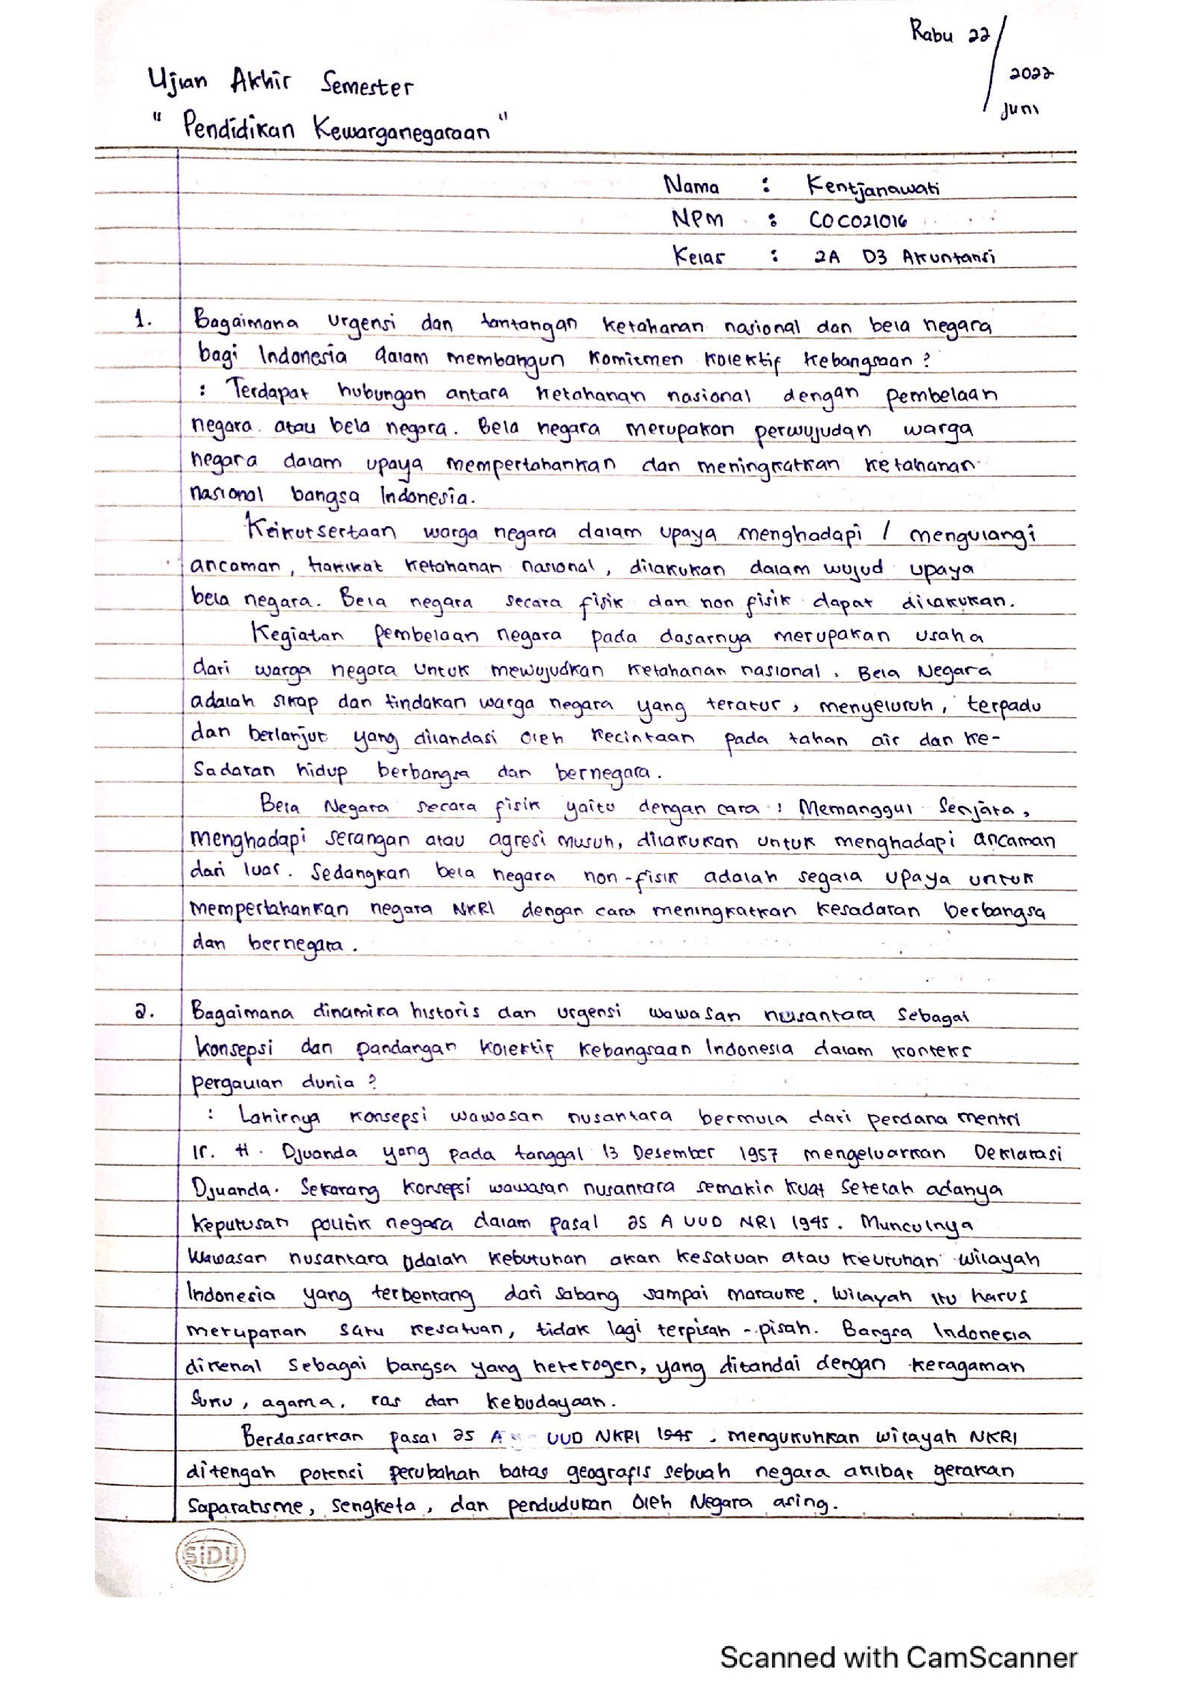 Rabu 22/
2022
Juni
Ujian Akhir Semester
" Pendidikan Kewarganegaraan "
Nama : Kentjanawati
NPM : COC021016
Kelas : 2A D3 Akuntansi
1. Bagaimana urgensi dan tantangan ketahanan nasional dan bela negara
bagi Indonesia dalam membangun komitmen kolektif kebangsaan ?
: Terdapat hubungan antara ketahanan nasional dengan pembelaan
negara atau bela negara. Bela negara merupakan perwujudan warga
negara dalam upaya mempertahankan dan meningkatkan ketahanan
nasional bangsa Indonesia.
Keikutsertaan warga negara dalam upaya menghadapi / mengulangi
ancaman, hakikat ketahanan nasional, dilakukan dalam wujud upaya
bela negara. Bela negara secara fisik dan non fisik dapat dilakukan.
Kegiatan pembelaan negara pada dasarnya merupakan usaha
dari warga negara untuk mewujudkan ketahanan nasional. Bela Negara
adalah sikap dan tindakan warga negara yang teratur, menyeluruh, terpadu
dan berlanjut yang dilandasi oleh kecintaan pada tahan air dan ke-
sadaran hidup berbangsa dan bernegara.
Bela Negara secara fisik yaitu dengan cara : Memanggul Senjara,
menghadapi serangan atau agresi musuh, dilakukan untuk menghadapi ancaman
dari luar. Sedangkan bela negara non-fisik adalah segala upaya untuk
mempertahankan negara NKRI dengan cara meningkatkan kesadaran berbangsa
dan bernegara.
2. Bagaimana dinamika historis dan urgensi wawasan nusantara sebagai
konsepsi dan pandangan kolektif kebangsaan Indonesia dalam konteks
pergaulan dunia ?
: Lahirnya konsepsi wawasan nusantara bermula dari perdana mentri
Ir. H. Djuanda yang pada tanggal 13 Desember 1957 mengeluarkan Deklarasi
Djuanda. Sekarang konsepsi wawasan nusantara semakin kuat setelah adanya
keputusan politik negara dalam pasal 25 A UUD NRI 1945. Munculnya
Wawasan nusantara adalah kebutuhan akan kesatuan atau keutuhan wilayah
Indonesia yang terbentang dari sabang sampai marauke. Wilayah itu harus
merupakan satu kesatuan, tidak lagi terpisah-pisah. Bangsa Indonesia
dikenal sebagai bangsa yang heterogen, yang ditandai dengan keragaman
suku, agama, ras dan kebudayaan.
Berdasarkan pasal 25 A UUD NKRI 1945. mengukuhkan wilayah NKRI
ditengah potensi perubahan batas geografis sebuah negara akibat gerakan
Saparatisme, sengketa, dan pendudukan oleh Negara asing.
SiDU
Scanned with CamScanner